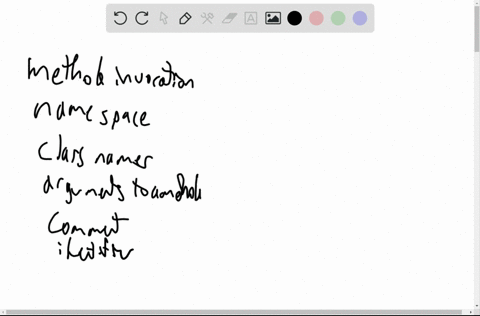 method invocation
namespace
class names
arguments to a method
Comment